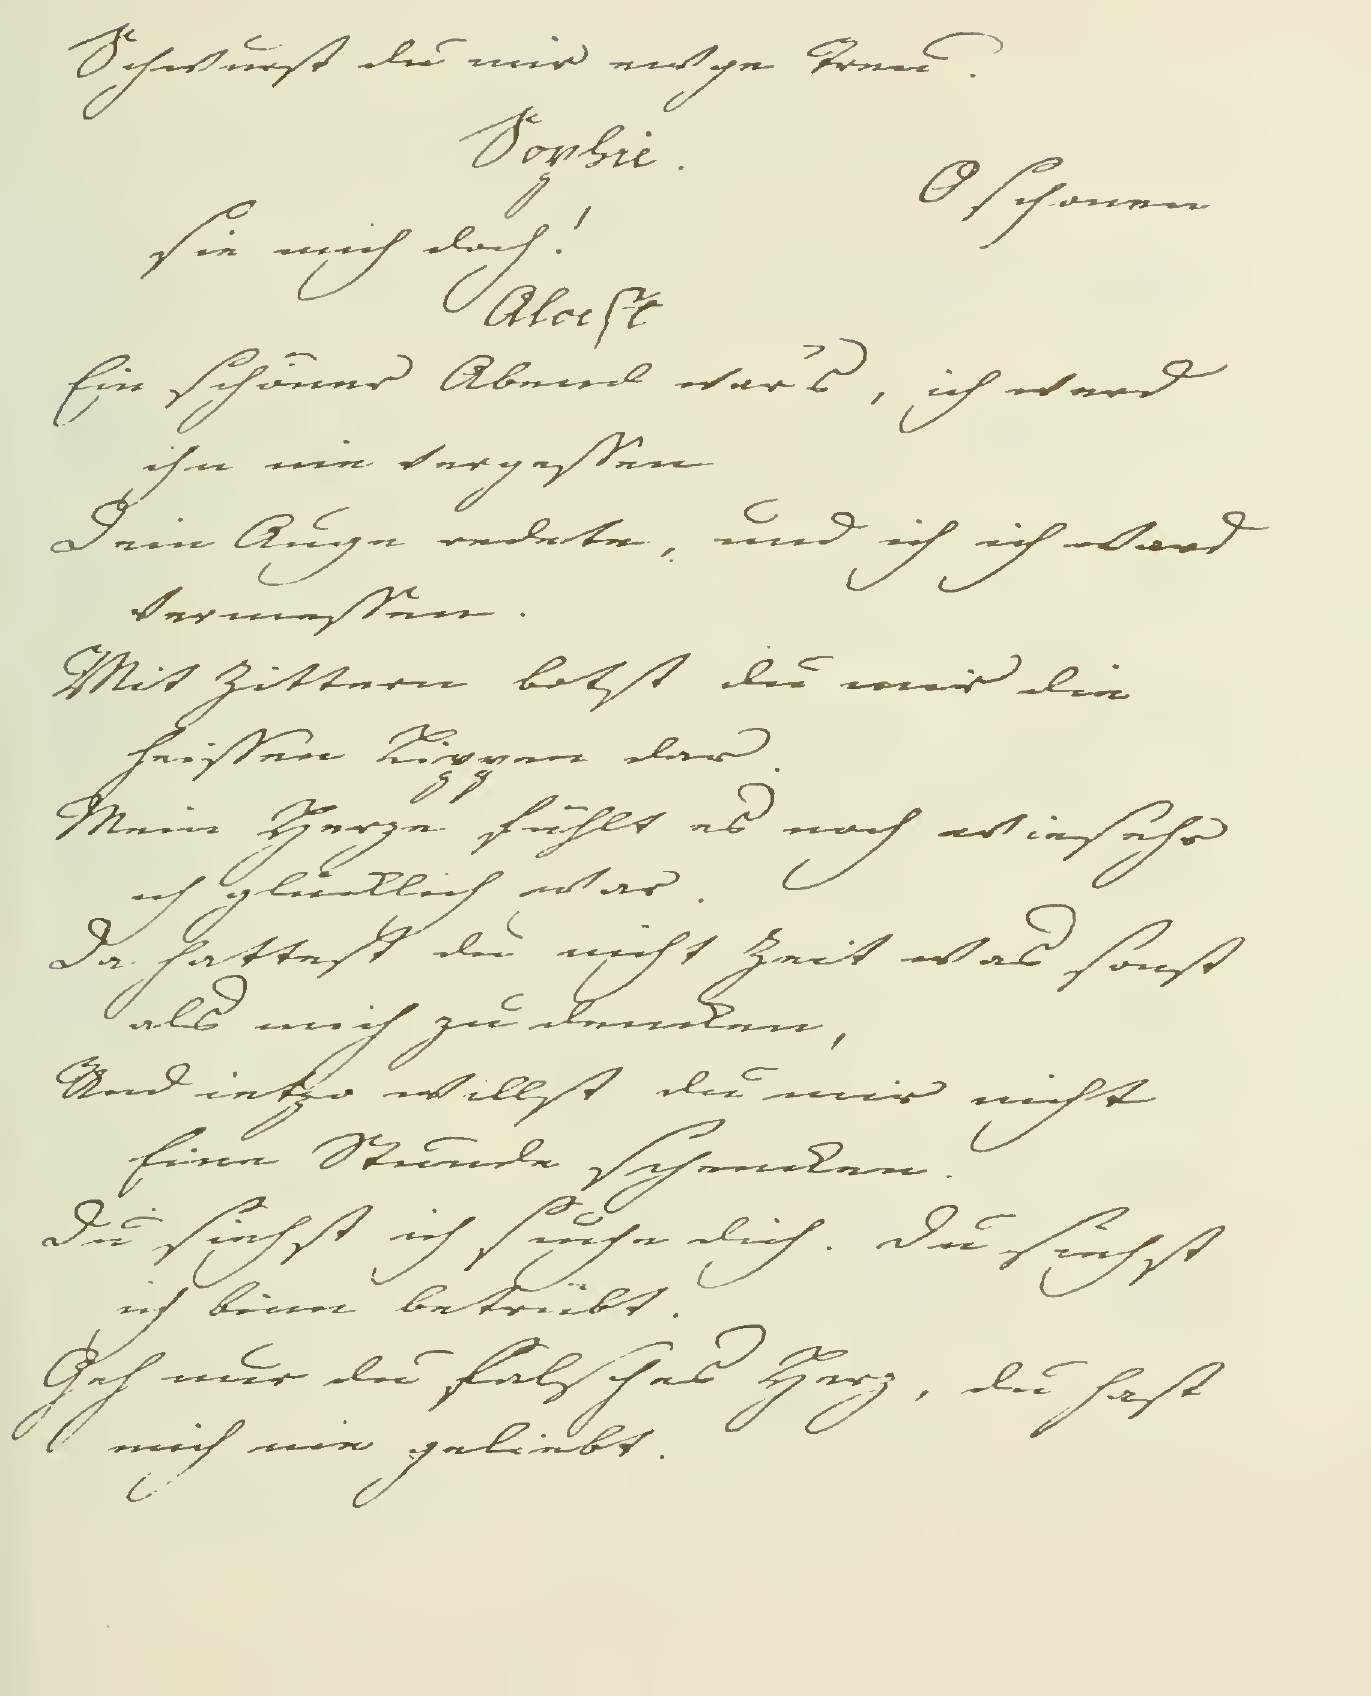 Schwurst du mir ewge Treu.
Sophie.
O schonen
sie mich doch!
Alcest
Ein schöner Abend war's, ich werd
ihn nie vergessen
Dein Auge redete, und ich ich ward
vermessen.
Mit Zittern botst du mir die
heissen Lippen dar.
Mein Herze fühlt es noch wiesehr
ich glücklich war.
Da hattest du nicht Zeit was sonst
als mich zu dencken,
Und ietzo willst du mir nicht
Eine Stunde schencken.
Du siehst ich suche dich. Du siehst
ich binn betrübt.
Geh nur du falsches Herz, du hast
mich nie geliebt.